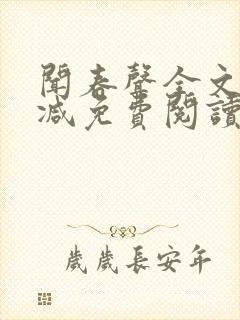 聞春聲全文
減免費閱讀
歲歲長安年